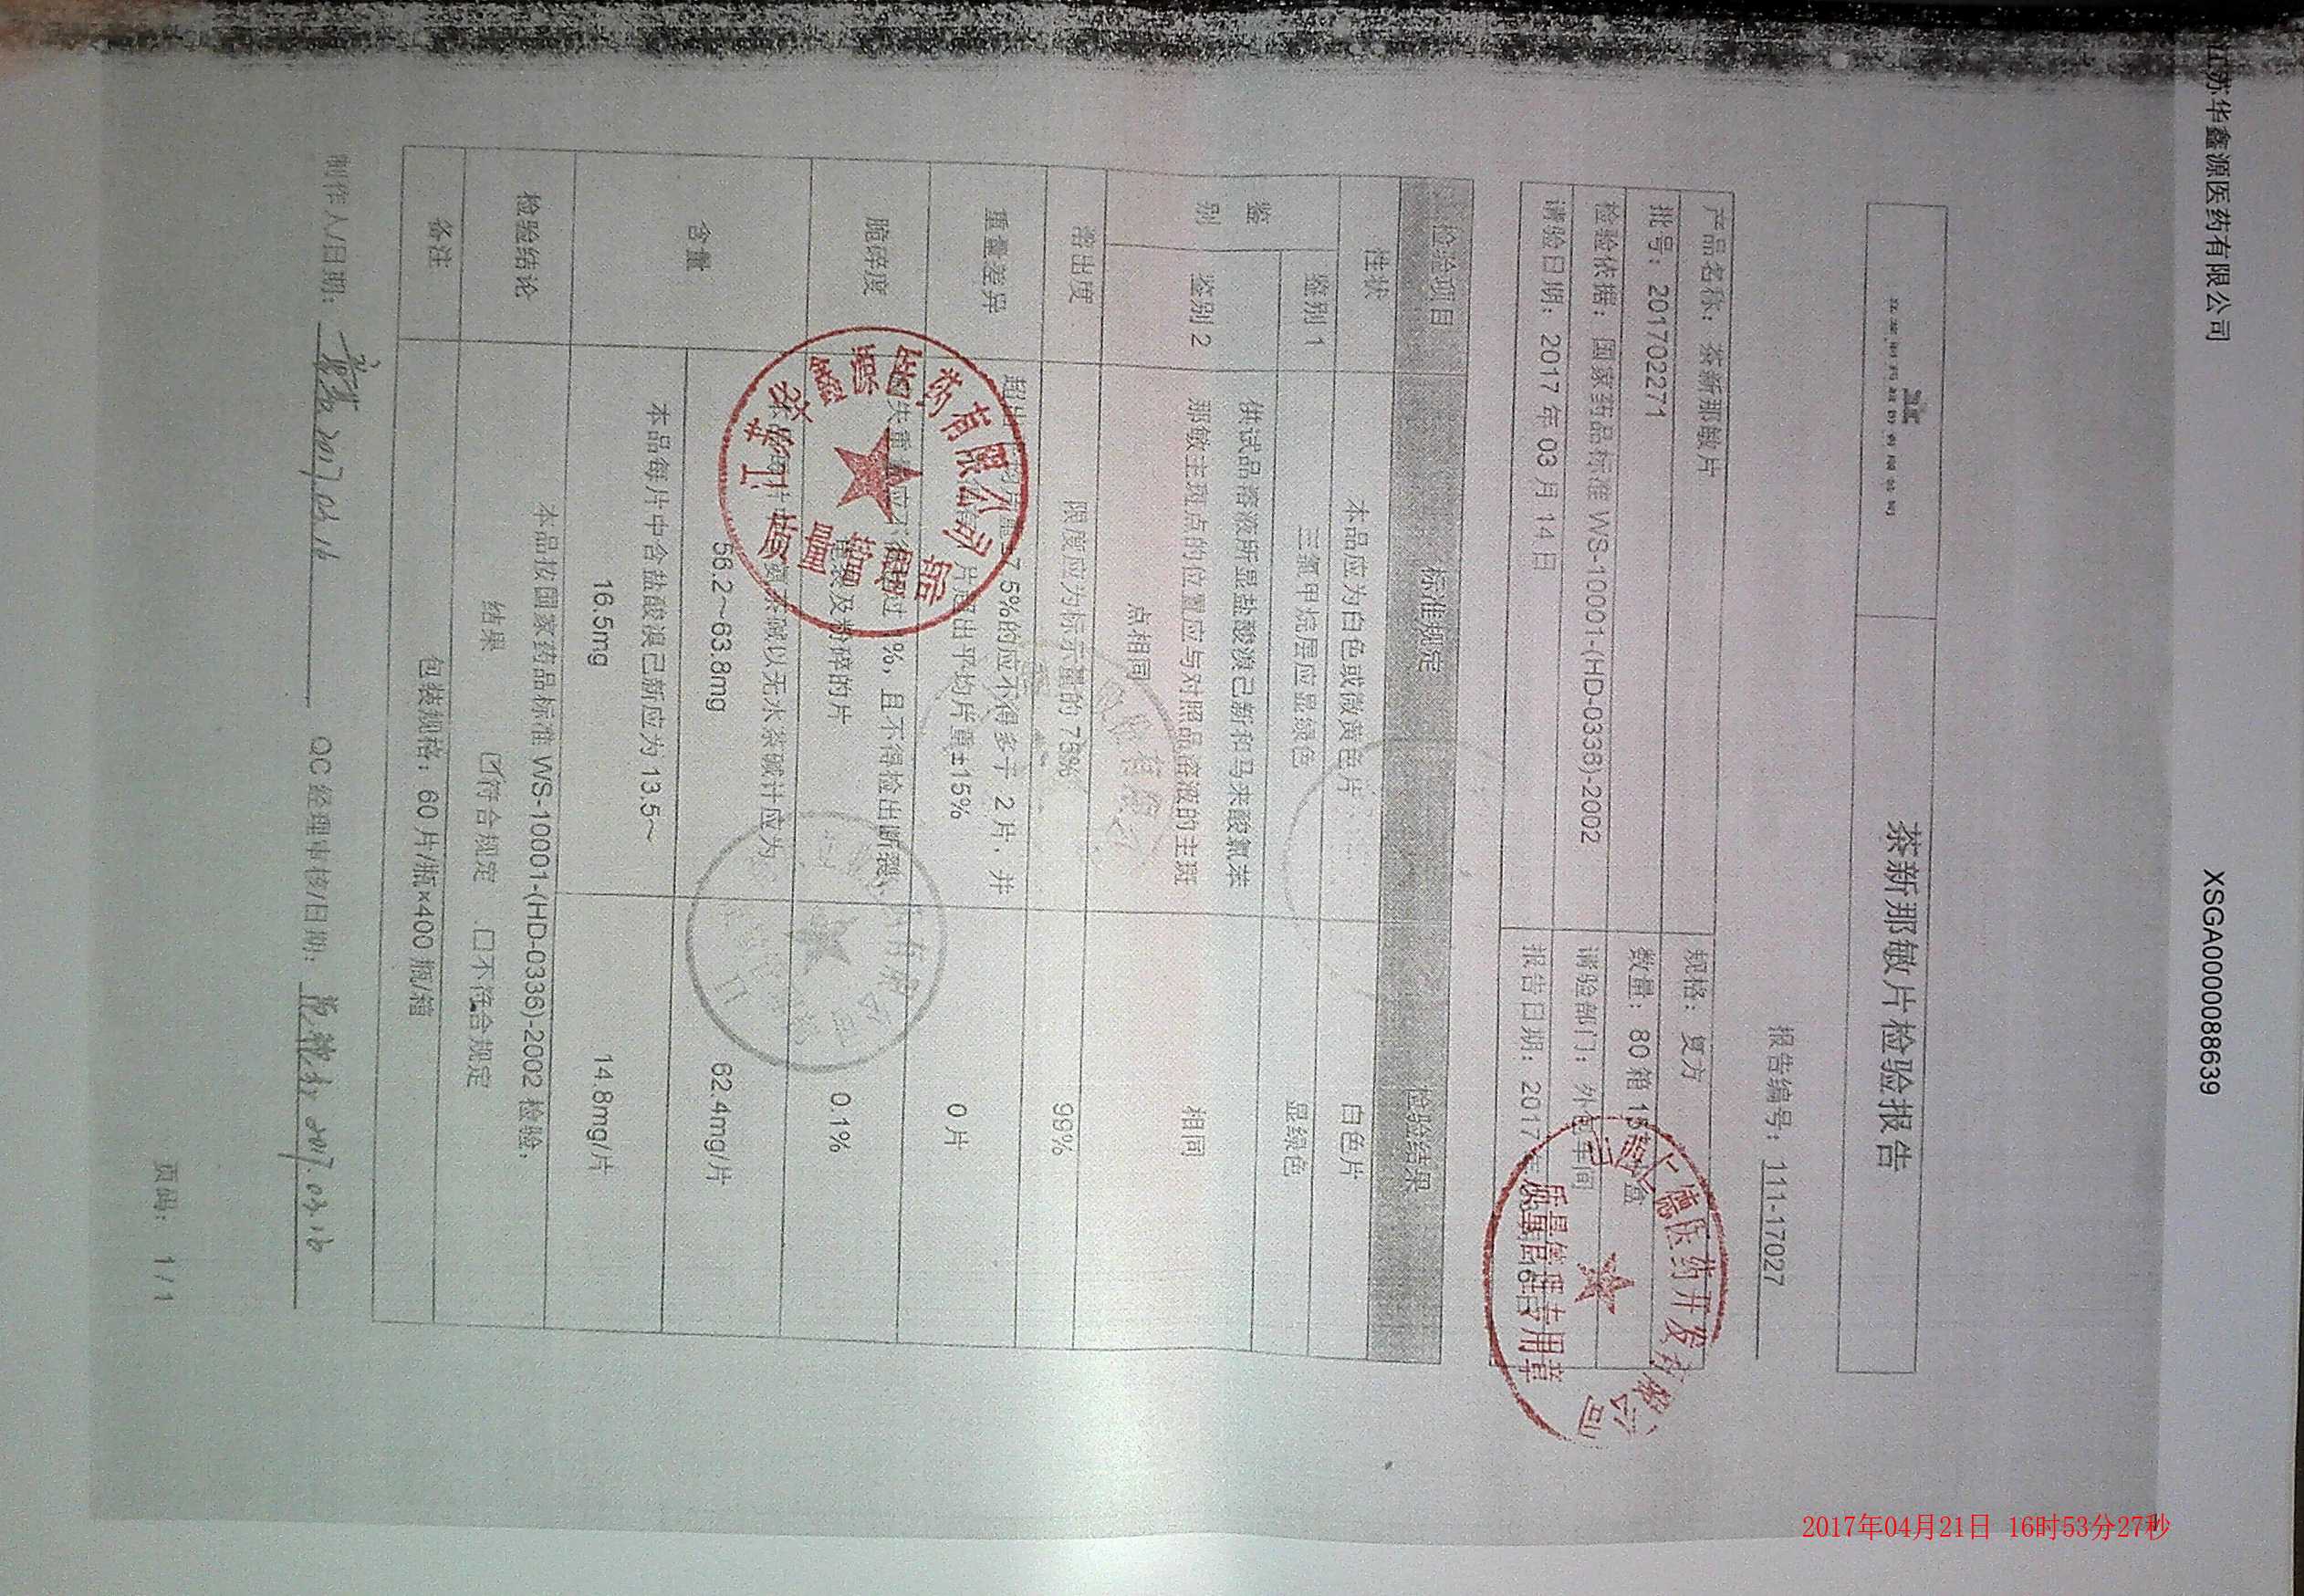 江苏华鑫源医药有限公司
XSGA00000088639
茶新那敏片检验报告
报告编号：111-17027
产品名称：茶新那敏片
规格：复方
批号：201702271
数量：80箱15
盒
检验依据：国家药品标准 WS-10001-(HD-0336)-2002
请验部门：外包车间
请验日期：2017年03月14日
报告日期：2017年
德医药开发有限公司
质量管理专用章
检验项目
标准规定
检验结果
性状
本品应为白色或微黄色片
白色片
鉴别
鉴别1
三氯甲烷层应显绿色
显绿色
鉴别2
供试品溶液所显盐酸溴己新和马来酸氯苯
那敏主斑点的位置应与对照品溶液的主斑
点相同
相同
溶出度
限度应为标示量的75%
99%
重量差异
7.5%的应不得多于2片，并
片超出平均片重±15%
0片
脆碎度
失重量应不得超过1%，且不得检出断裂、
龟裂及粉碎的片
0.1%
含量
茶碱以无水茶碱计应为
56.2～63.8mg
62.4mg/片
本品每片中含盐酸溴己新应为13.5～
16.5mg
14.8mg/片
江苏华鑫源医药有限公司
质量管理
检验结论
本品按国家药品标准 WS-10001-(HD-0336)-2002 检验，
结果 ☑符合规定 □不符合规定
备注
包装规格：60片/瓶×400瓶/箱
制作人/日期：
2017.03.16
QC经理审核/日期：
2017.03.16
页码：1/1
2017年04月21日 16时53分27秒